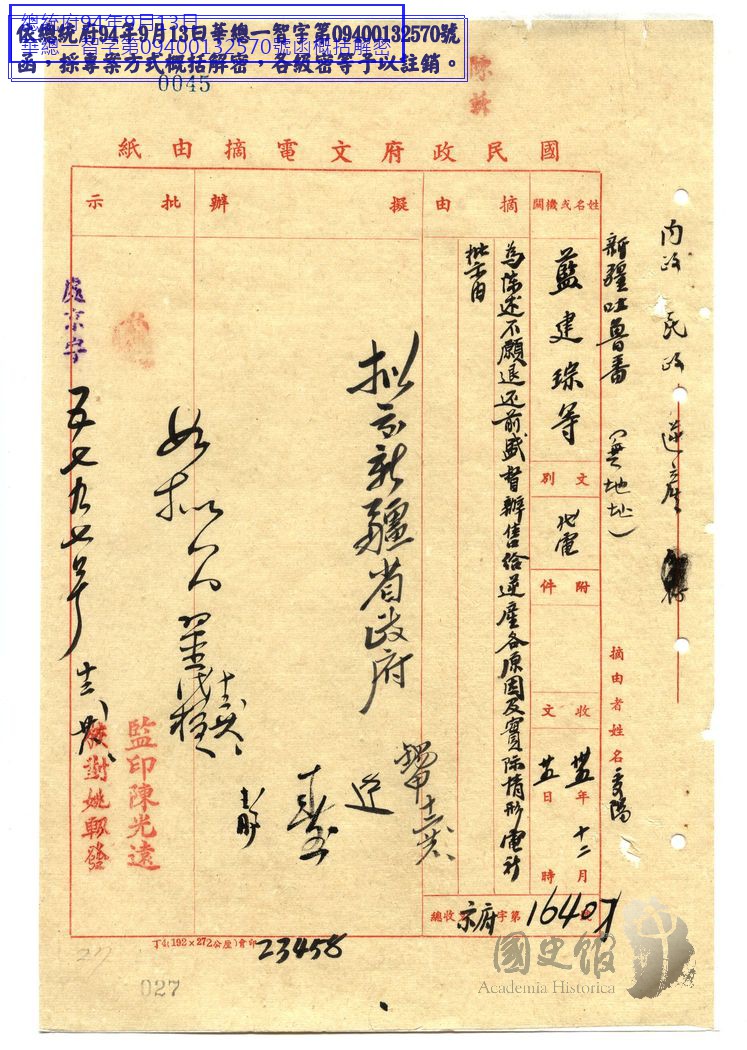 總統府94年9月13日
華總一智字第09400132570號函概括解密
依總統府94年9月13日華總一智字第09400132570號
函，採專案方式概括解密，各級密等予以註銷。
0045
國民政府文電摘由紙
內政 民政 逆產
新疆吐魯番 （無地址）
摘由者姓名
姓名或機關
藍建琮等
文別
代電
附件
收文
卅五年十二月廿五日時
摘由
為陳述不願退還前盛督辦售給逆產各原因及實際情形電祈
批示由
擬辦
拟交新疆省政府
批示
如拟
處京字
五七九七号
監印陳光遠
校對姚軔發
總收京府字第16407號
丁4(192×272公厘)會印
23458
027
國史館
Academia Historica